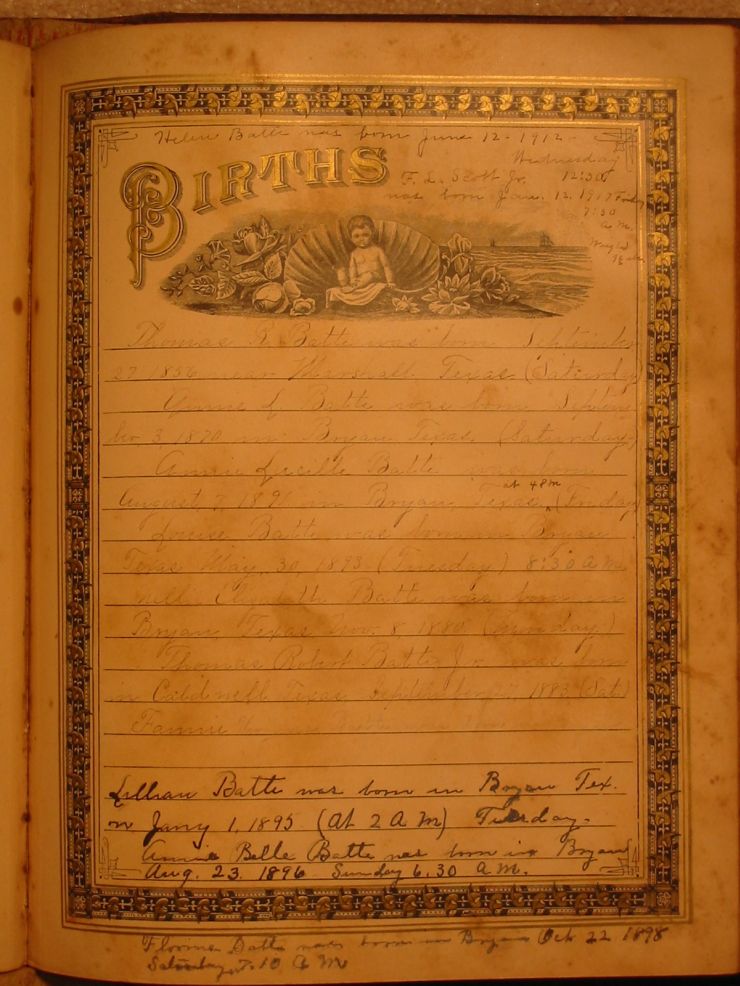 Helen Batte was born June 12 - 1912 -
Wednesday
12:30
BIRTHS
F. L. Scott Jr.
was born Jan. 12, 1917 Friday
7:30
a.m.
Weighed
Thomas R. Batte was born September
27 1856 near Marshall Texas. (Saturday)
Batte was born Septem
ber 3, 1870 in Bryan Texas. (Saturday)
Annie Lucille Batte was born
at 4 8 m
August 7, 1891 in Bryan, Texas, (Friday
Louise Batte was born in Bryan
Texas May, 30, 1893 (Tuesday) 8:30 A M
Nellie Elizabeth Batte was born in
Bryan, Texas Nov. 8, (Monday)
Thomas Robert Batte Jr. was born
in Caldwell Texas September 1883 (Sat.)
Fannie Batte was born
Lillian Batte was born in Bryan Tex.
on Jany 1, 1895. (At 2 A M) Tuesday-
Annie Belle Batte was born in Bryan
Aug. 23. 1896 Sunday 6.30 A.M.
Batte was born in Bryan Oct 22 1898
Saturday 7.10 A M